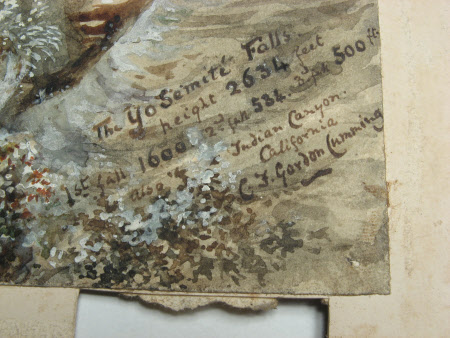 The Yosemité Falls.
height 2634 feet
1st fall 1600. 2d fall 534. 3d fall 500 ft.
also Indian Canyon.
California
C. F. Gordon Cumming